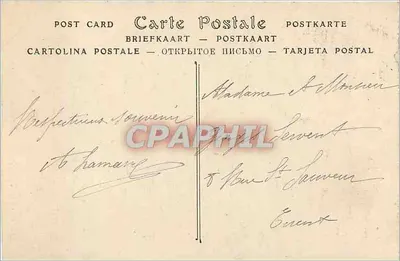 POST CARD Carte Postale POSTKARTE
BRIEFKAART — POSTKAART
CARTOLINA POSTALE — ОТКРЫТОЕ ПИСЬМО — TARJETA POSTAL
Respectueux souvenir
Madame et Monsieur
Servent
8 Rue St Sauveur
CPAPHIL.com